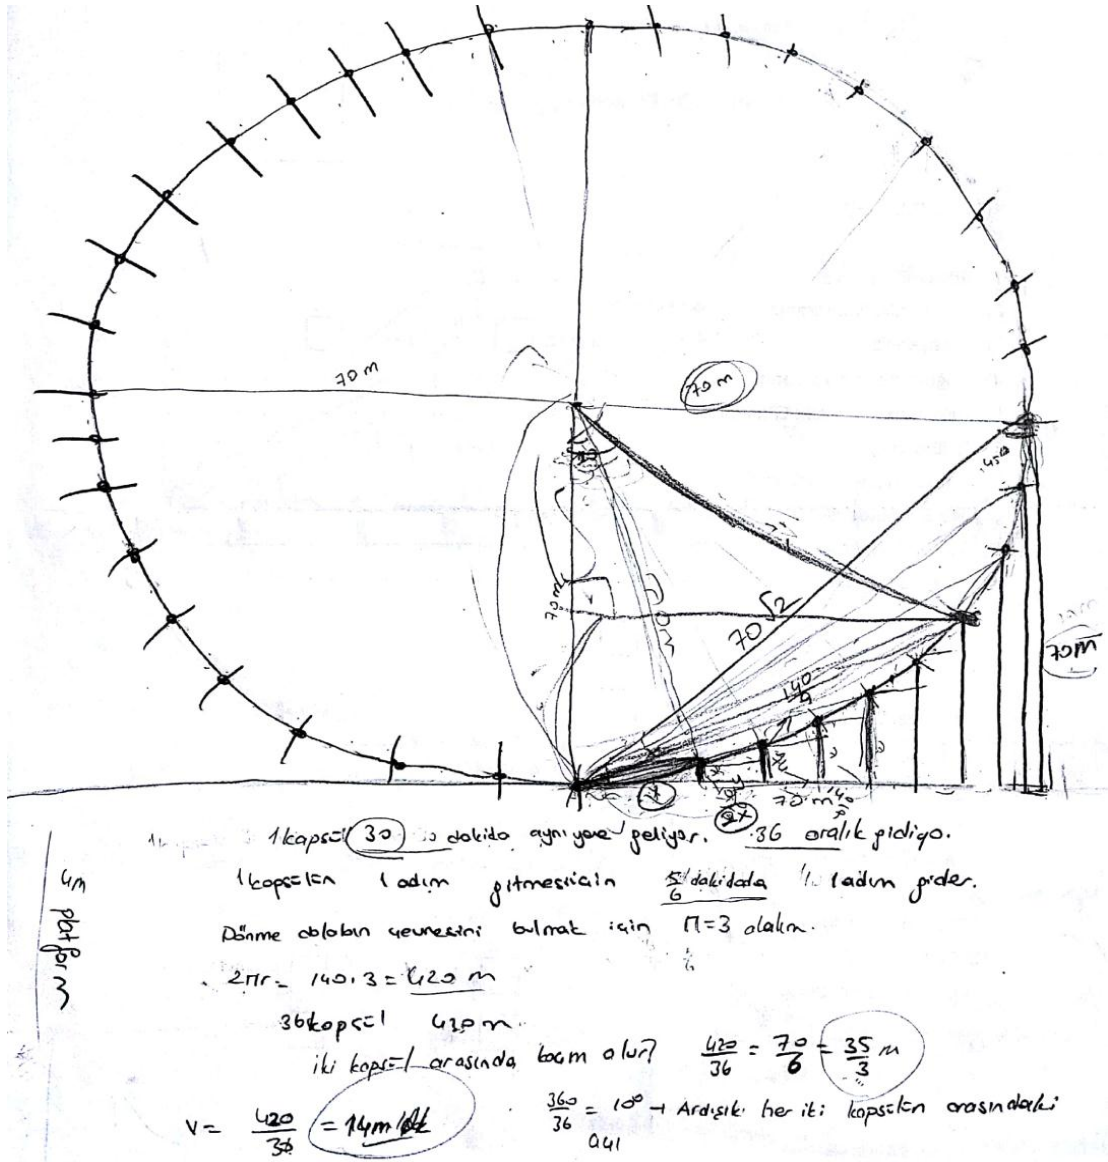 70 m
70 m
45°
70 m
70 m
70√2
70 m
140/9
70 m
1 kapsül 30 dakida aynı yere geliyor. 36 aralık gidiyo.
1 kapsülün 1 adım gitmesi için 5/6 dakidada 1 adım gider.
Dönme dolabın çevresini bulmak için Π=3 alalım.
2πr = 140.3 = 420 m
36 kapsül 420 m.
iki kapsül arasında kaçm olur? 420/36 = 70/6 = 35/3 m
V = 420/30 = 14m/dk
360/36 = 10° → Ardışık her iki kapsülün arasındaki
açı
4m platform